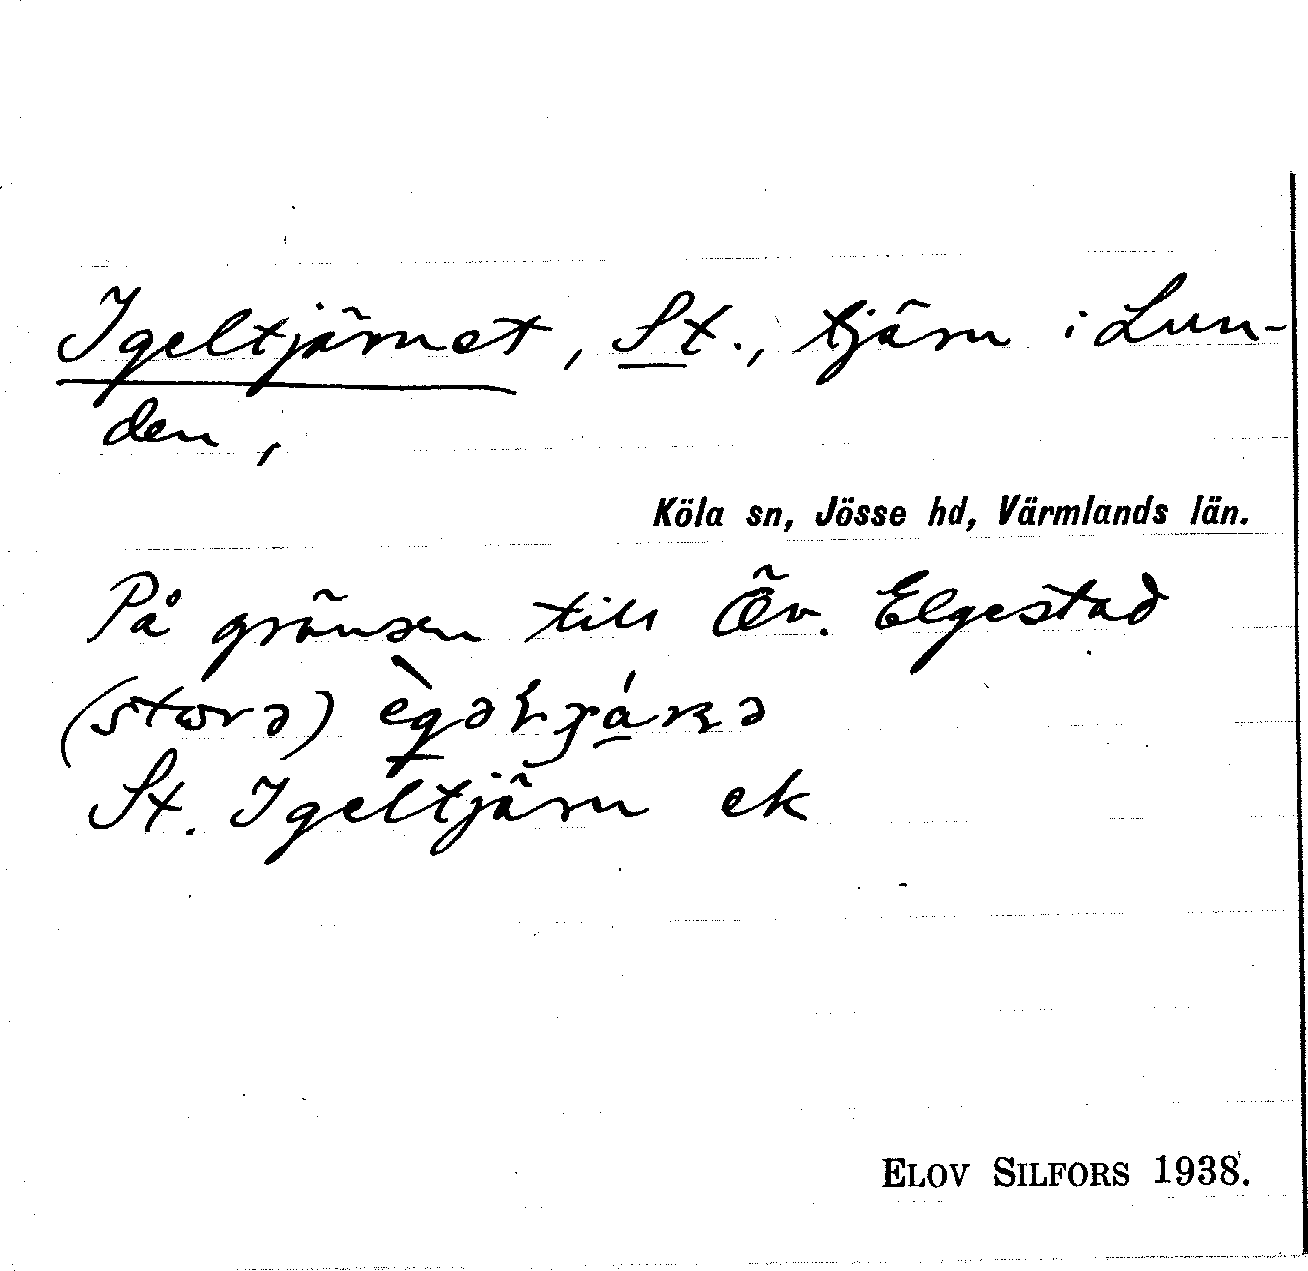 Igeltjärnet, St., tjärn i Lun-
den,
Köla sn, Jösse hd, Värmlands län.
På gränsen till Öv. Elgestad
(storə)
St. Igeltjärn ek
ELOV SILFORS 1938.